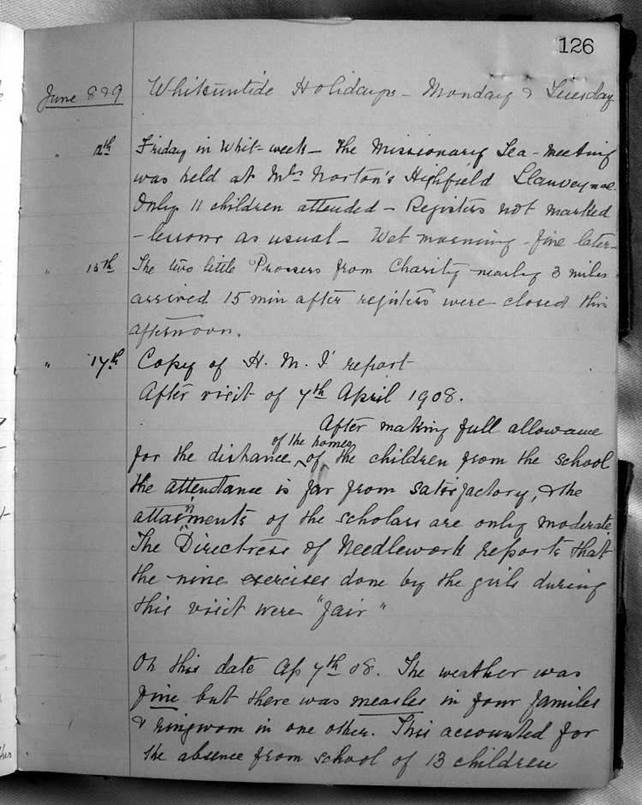 126
June 8 & 9 Whitsuntide Holidays - Monday & Tuesday
" 12th Friday in Whit-week - The Missionary Tea-meeting
was held at Mrs Norton's Highfield
Only 11 children attended - Registers not marked
- lessons as usual - Wet morning - fine later -
" 15th The two little Prossers from Charity nearly 3 miles
arrived 15 min after registers were closed this
afternoon.
" 17th Copy of H. M. I' report
After visit of 7th April 1908.
After making full allowance
of the homes
for the distance of the children from the school
the attendance is far from satisfactory, & the
attainments of the scholars are only moderate
The Directress of Needlework reports that
the nine exercises done by the girls during
this visit were "fair"
On this date Ap 7th 08. The weather was
fine but there was measles in four families
& ringworm in one other. This accounted for
the absence from school of 13 children